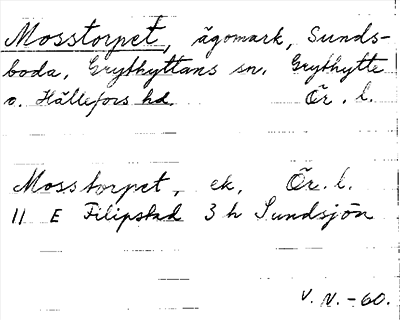 Mosstorpet, ägomark, Sunds-
boda, Grythyttans sn. Grythytte
o. Hällefors hd. Ör. l.
Mosstorpet, ek, Ör. l.
11 E Filipstad 3 h Sundsjön
V. N. -60.